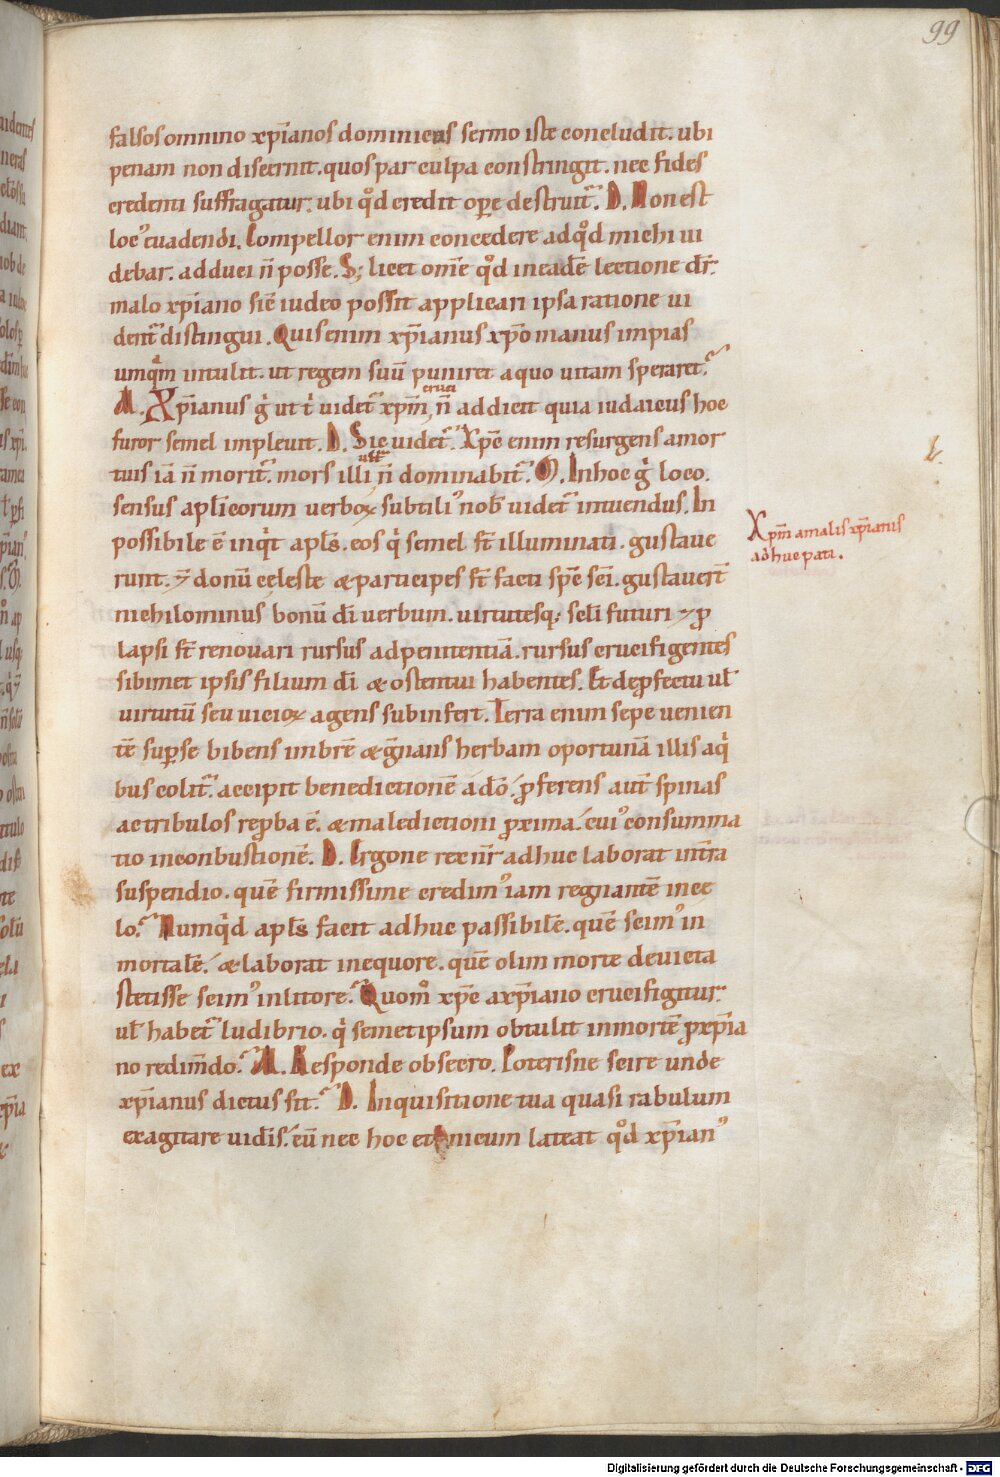 99
falsos omnino xp̄ianos dominicus sermo iste concludit. ubi
penam non discernit. quos par culpa constringit. nec fides
credenti suffragatur. ubi qd̊ credit oꝑe destruit᷑. D. Non est
loc᾽ euadendi. Compellor enim concedere ad qd̊ michi ui
debar. adduci n̄ posse. S; licet om̄e qd̊ in eadē lectione dr̄.
malo xp̄iano sic̄ iudeo possit applicari ipsa ratione ui
dent᷑ distingui. Quis enim xp̄ianus xp̄o manus impias
umqm̄ intulit. ut regem suū puniret a quo uitam speraret.
M. Xp̄ianus g̊ ut t̊ uidet᷑ xp̄m, n̄ addicit quia iudaicus hoc
cruci
furor semel impleuit. D. Sic uidet᷑. Xp̄c enim resurgens a mor
tuis iā n̄ morit᷑. mors illi n̄ dominabit᷑. M. In hoc g̊ loco.
ult᷑
sensus aplicorum uerboꝝ subtili᾽ nob̄ uidet᷑ intuendus. In
possibile ē inq̊t apl̄s. eos q̊ semel st̄ illuminati. gustaue
runt. ⁊ donū celeste & participes st̄ facti sp̄c sc̄i. gustauer̄t
nichilominus bonū dī uerbum. uirtutesq; sc̄li futuri ⁊ ꝓ
lapsi st̄ renouari rursus ad penitentiā. rursus crucifigentes
sibimet ipsis filium dī & ostentui habentes. Et de ꝓfectu ul̄
uirtutū seu uicioꝝ agens subinfert. Terra enim sepe uenien
tē suꝑ se bibens imbrē & g̅nans herbam oportunā illis a q̊
bus colit᷑. accipit benedictionē a dō. ꝓferens aut̄ spinas
ac tribulos reꝓba ē. & maledictioni ꝓxima. cui᾽ consumma
tio in conbustionē. D. Ergone rex nr̄ adhuc laborat int̄ra
suspendio. quē firmissime credim᾽ iam regnantē in ce
lo. Numq̊d apl̄s facit adhuc passibilē. quē scim᾽ in
mortalē. & laborat in equore. quē olim morte deuicta
stetisse scim᾽ in litore. Quom̊ xp̄c a xp̄iano crucifigitur.
ul̄ habet᷑ ludibrio. q̊ semetipsum obtulit in mortē ꝓ xp̄ia
no redim̄do. M. Responde obsecro. Poterisne scire unde
xp̄ianus dictus sit. D. Inquisitione tua quasi rabulum
exagitare uidis. cū nec hoc et nicum lateat qd̊ xp̄ian᾽
Xp̄m a malis xp̄ianis
adhuc pati.
Digitalisierung gefördert durch die Deutsche Forschungsgemeinschaft - DFG